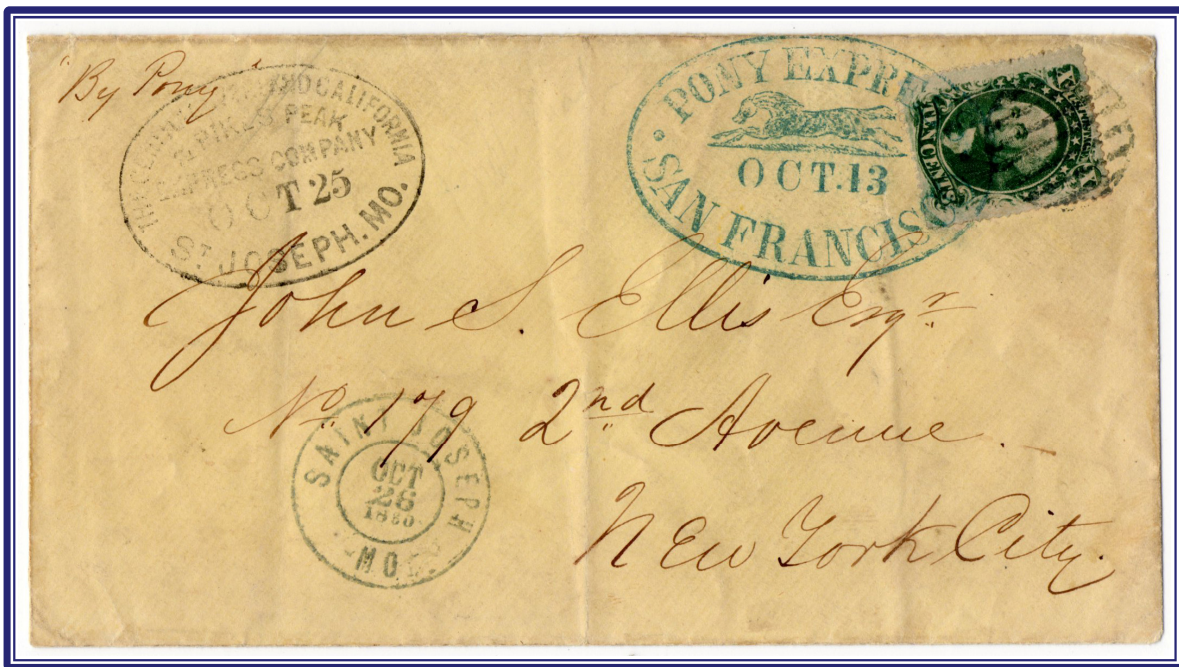 "By Pony"
CALIFORNIA
& PIKE'S PEAK
EXPRESS COMPANY
OCT 25
ST. JOSEPH. MO.
PONY EXPRE
OCT. 13
SAN FRANCISCO
TEN CENTS
John S. Ellis Esqr
No 179 2nd Avenue.
New York City.
SAINT JOSEPH
OCT
26
1860
MO.